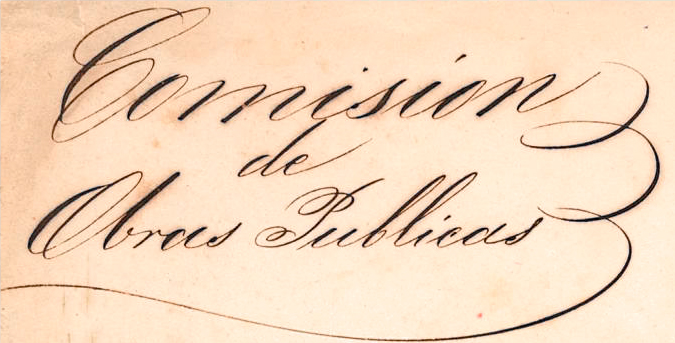 Comision
de
Obras Publicas